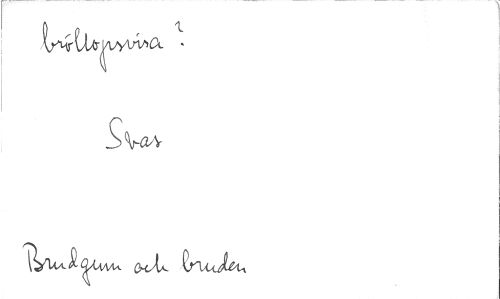 bröllopsvisa?
Svar
Brudgum och bruden